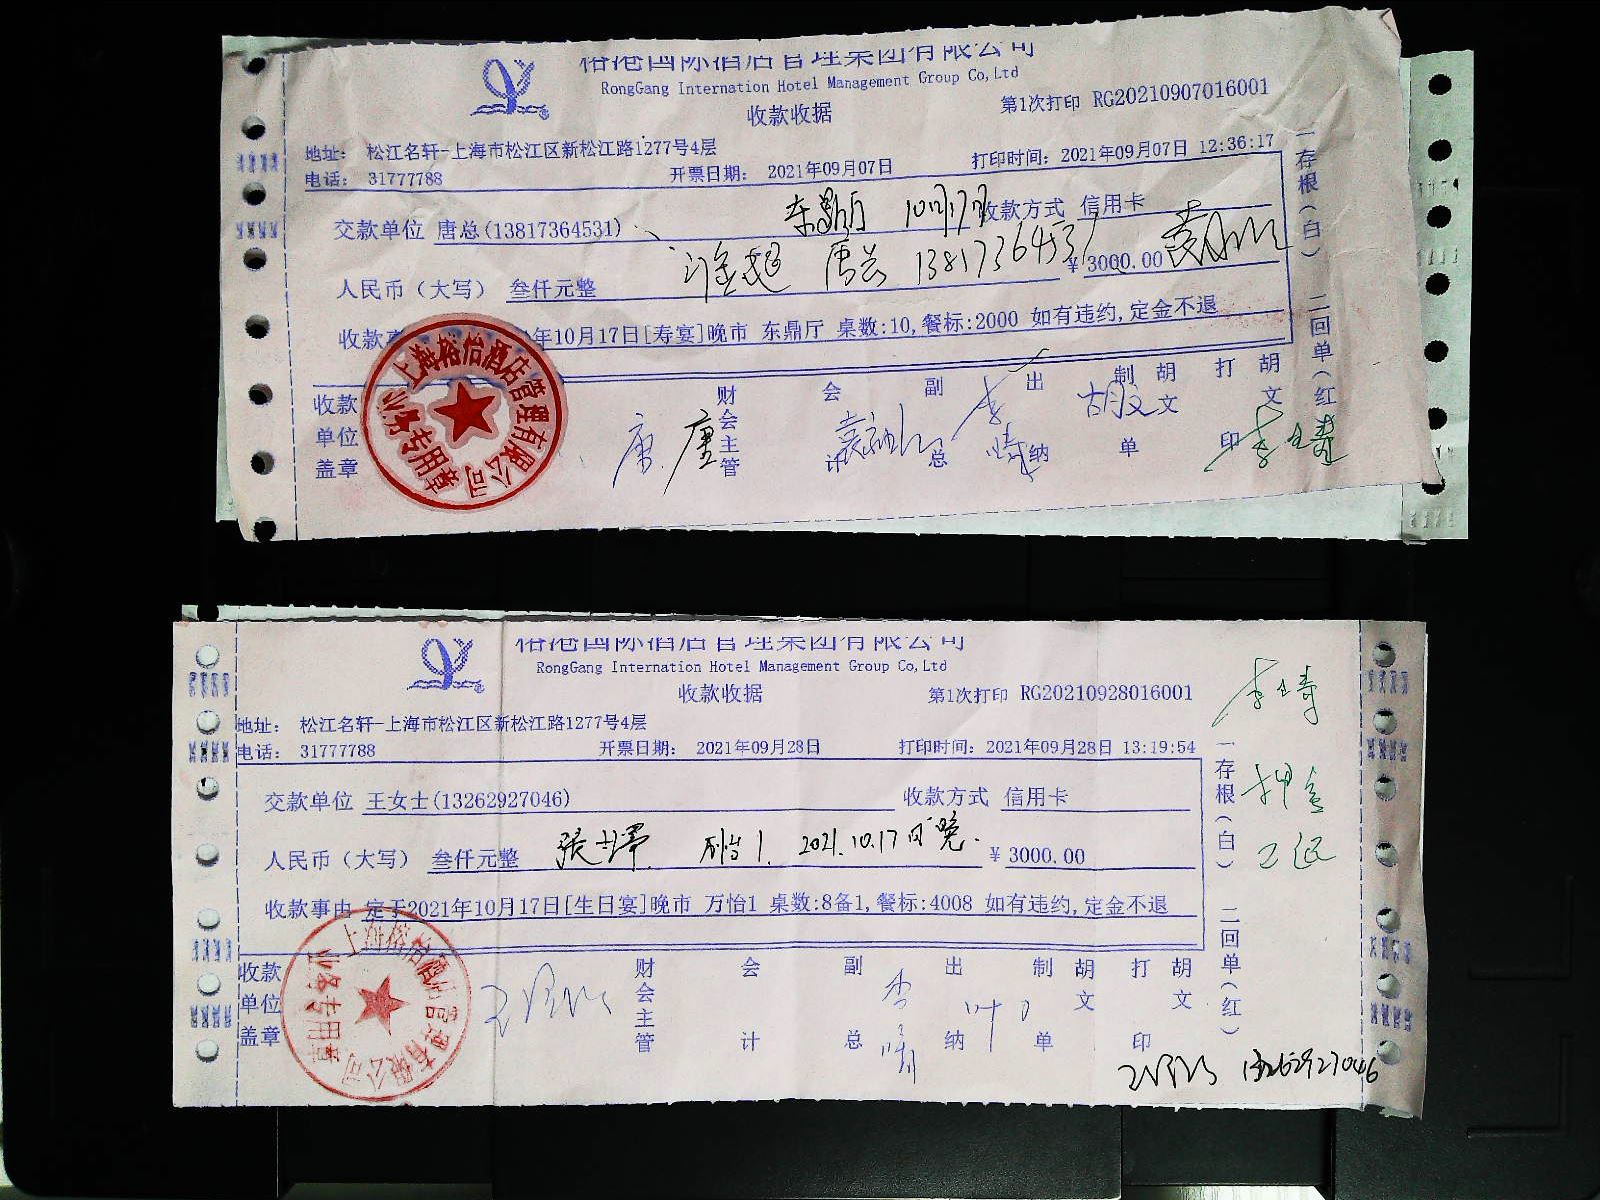 裕港国际酒店管理集团有限公司
RongGang Internation Hotel Management Group Co,Ltd
收款收据
第1次打印 RG20210907016001
地址： 松江名轩-上海市松江区新松江路1277号4层
电话： 31777788 开票日期： 2021年09月07日 打印时间：2021年09月07日 12:36:17
东鼎厅 10月17日
交款单位 唐总(13817364531) 收款方式 信用卡
13817364531
人民币（大写） 叁仟元整 ¥ 3000.00
收款 年10月17日[寿宴]晚市 东鼎厅 桌数:10,餐标:2000 如有违约,定金不退
收款单位盖章 财会主管 会计 副总 出纳 制单 胡文 打印 胡文
上海裕怡酒店管理有限公司
业务专用章
一存根（白） 二回单（红）
裕港国际酒店管理集团有限公司
RongGang Internation Hotel Management Group Co,Ltd
收款收据
第1次打印 RG20210928016001
地址： 松江名轩-上海市松江区新松江路1277号4层
电话： 31777788 开票日期： 2021年09月28日 打印时间：2021年09月28日 13:19:54
交款单位 王女士(13262927046) 收款方式 信用卡
2021.10.17日晚.
人民币（大写） 叁仟元整 ¥ 3000.00
收款事由 定于2021年10月17日[生日宴]晚市 万怡1 桌数:8备1,餐标:4008 如有违约,定金不退
收款单位盖章 财会主管 会计 副总 出纳 制单 胡文 打印 胡文
上海裕怡酒店管理有限公司
业务专用章
一存根（白） 二回单（红）
押金
13262927046